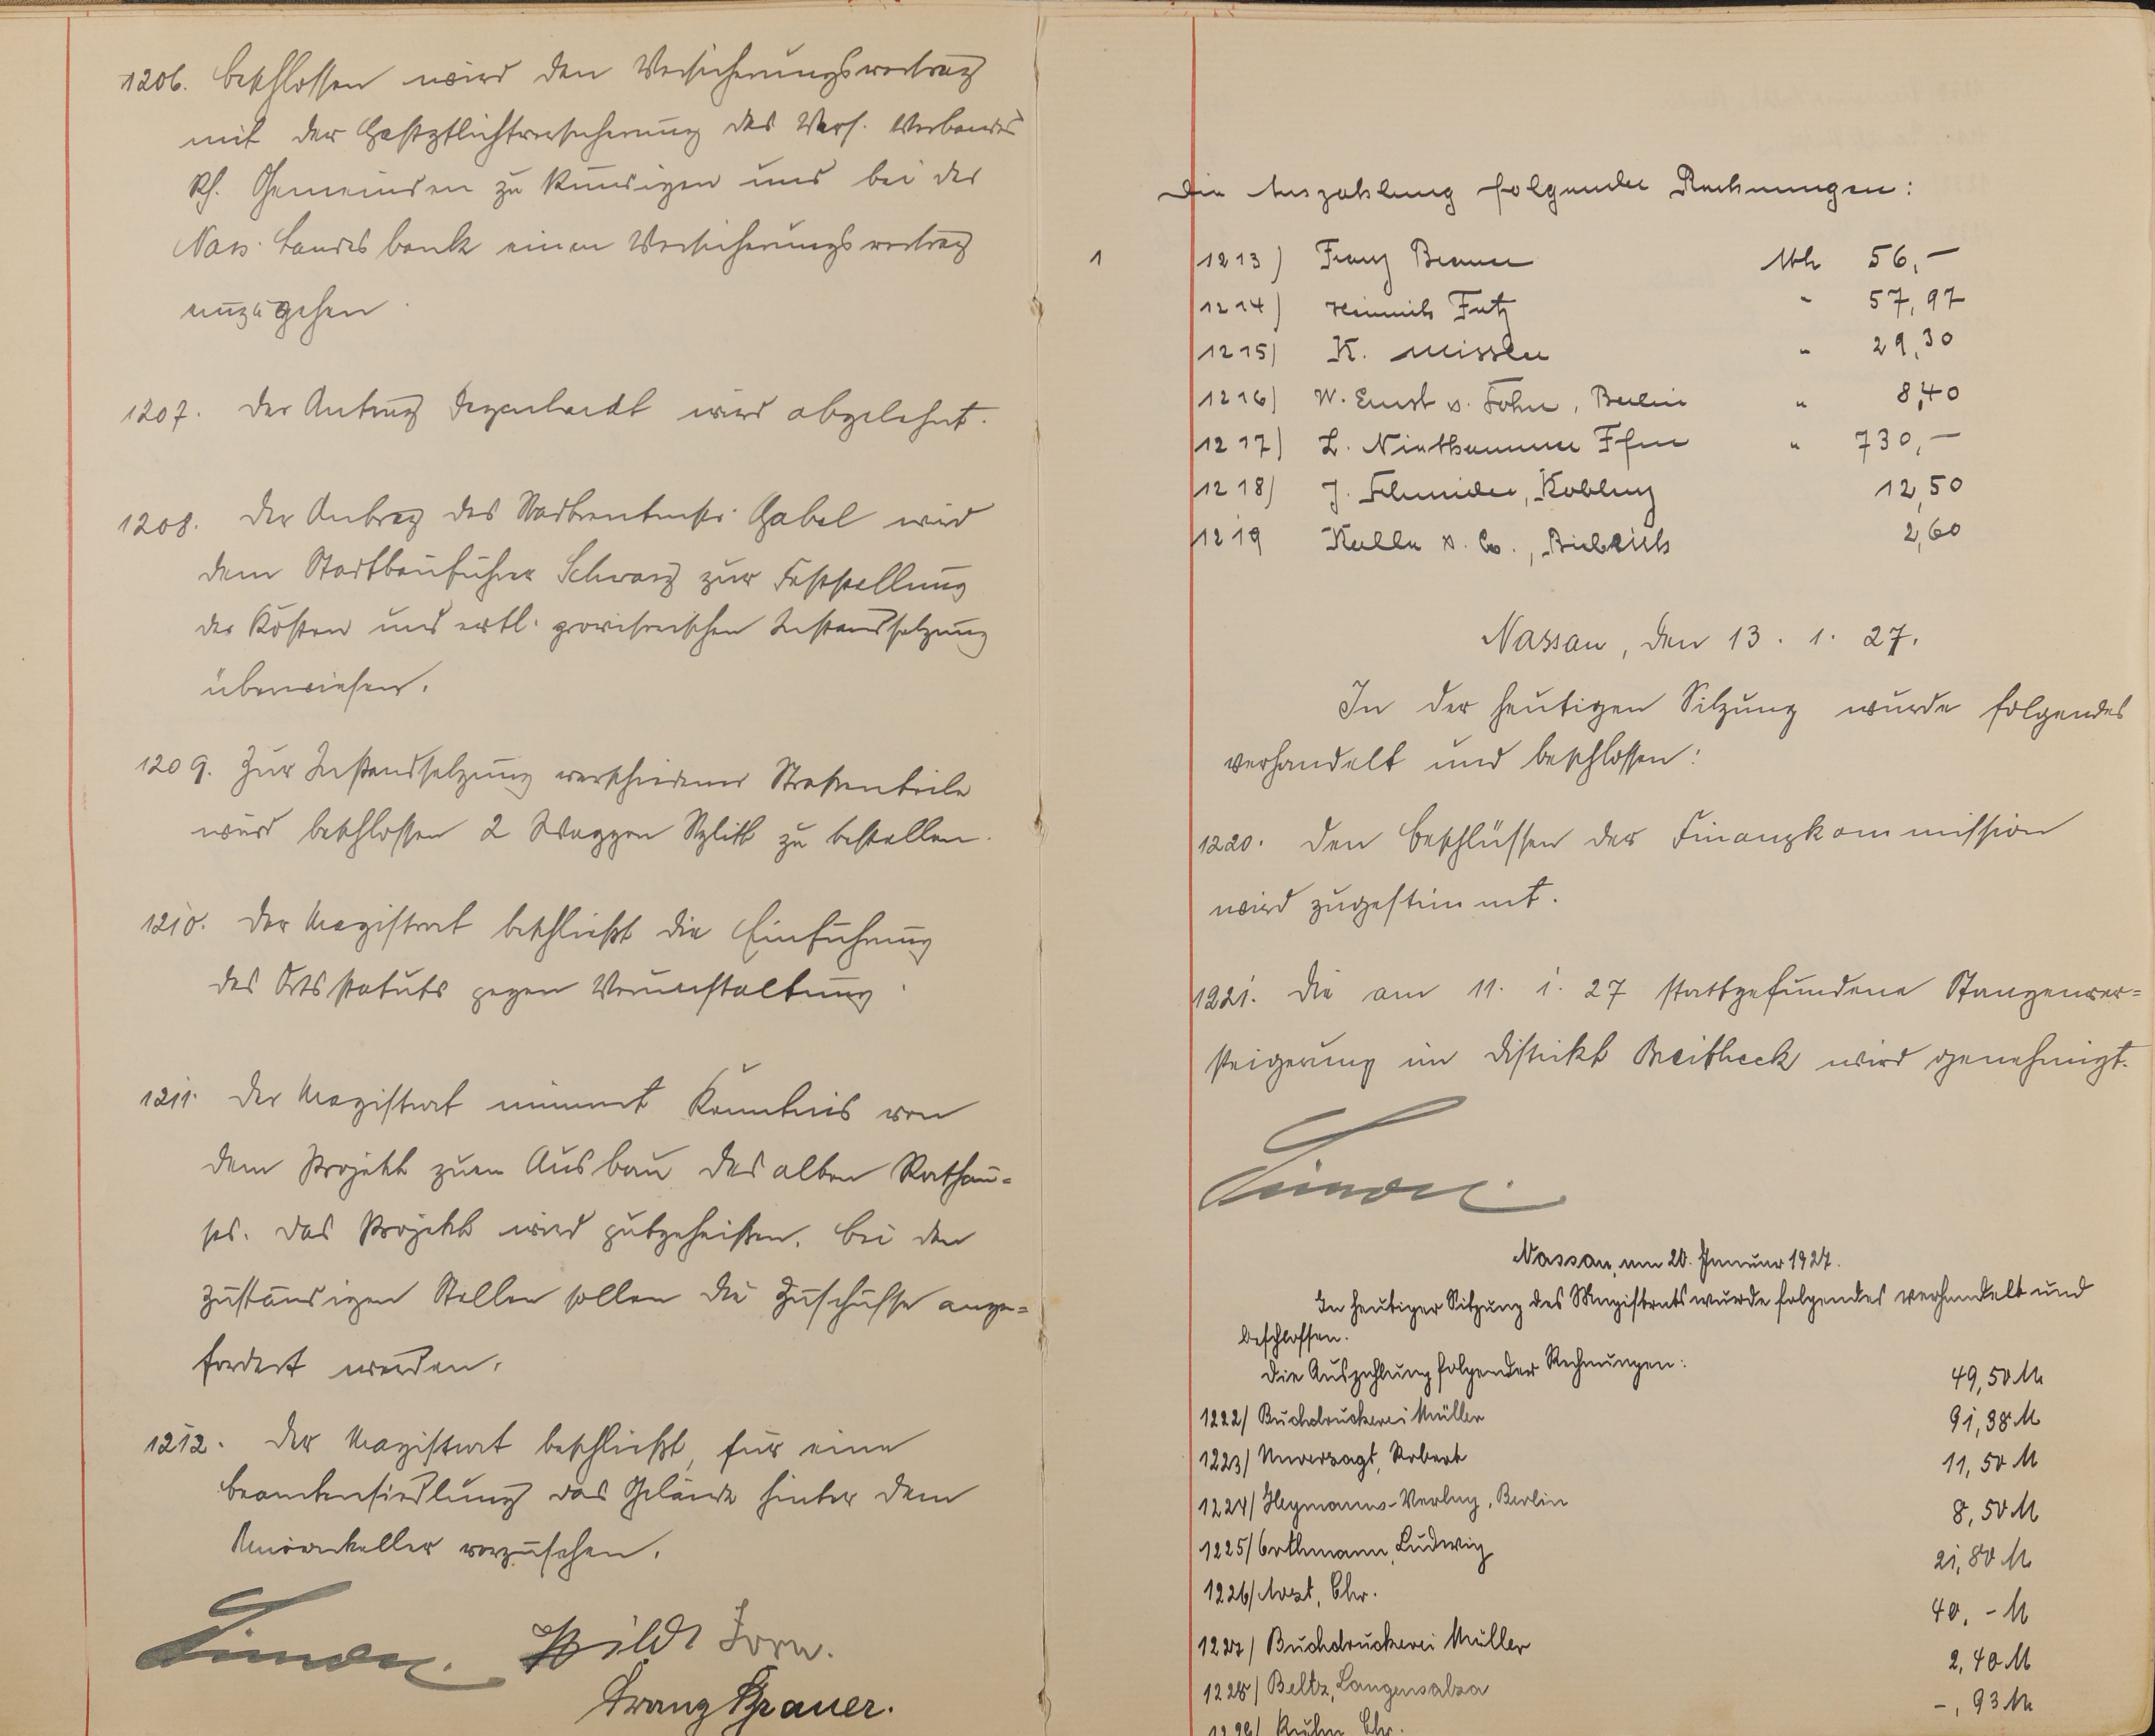 1206. Beschlossen wird den Versicherungsvertrag
mit der Haftpflichtversicherung des Vers. Verbandes
Rh. Gemeinden zu kündigen und bei der
Nass. Landesbank einen Versicherungsvertrag
einzugehen.
1207. Der Antrag Degenhardt wird abgelehnt.
1208. Der Antrag des Stadtrentmstr. Gabel wird
dem Stadtbauführer Schwarz zur Feststellung
der Kosten und evtl. provisorischen Instandsetzung
überwiesen.
1209. Zur Instandsetzung verschiedener Straßenteile
wird beschlossen 2 Waggon Splitt zu bestellen.
1210. Der Magistrat beschließt die Einführung
des Ortsstatuts gegen Verunstaltung.
1211. Der Magistrat nimmt Kenntnis von
dem Projekt zum Ausbau des alten Rathau=
ses. Das Projekt wird gutgeheißen. Bei den
zuständigen Stellen sollen die Zuschüsse ange=
fordert werden.
1212. Der Magistrat beschließt, für eine
Beamtensiedlung das Gelände hinter dem
vorzusehen.
Wilds Zorn.
Franz Brauer.
Die Auszahlung folgender Rechnungen:
1
1213) Franz Brauer Mk 56,—
1214) Heinrich " 57,97
1215) K. Missler " 29,30
1216) W. Ernst u. Sohn, Berlin " 8,40
1217) L. Niethammer Ffm " 730,—
1218) J. Schneider, Koblenz 12,50
1219 Kalle u. Co., Biebrich 2,60
Nassau, den 13. 1. 27.
In der heutigen Sitzung wurde folgendes
verhandelt und beschlossen:
1220. Den Beschlüssen der Finanzkommission
wird zugestimmt.
1221. Die am 11. 1. 27 stattgefundene Stangenver=
steigerung im Distrikt wird genehmigt.
Nassau, am 20. Januar 1927.
In heutiger Sitzung des Magistrats wurde folgendes verhandelt und
beschlossen.
Die Auszahlung folgender Rechnungen:
1222/ Buchdruckerei Müller 49,50 M
1223/ Unverzagt, Robert 91,38 M
1224/ Heymanns-Verlag, Berlin 11,50 M
1225/ Ludwig 8,50 M
1226/ Chr. 21,80 M
1227/ Buchdruckerei Müller 40,- M
1228/ Beltz, Langensalza 2,40 M
1229/ Kuhn, Chr. -,93 M